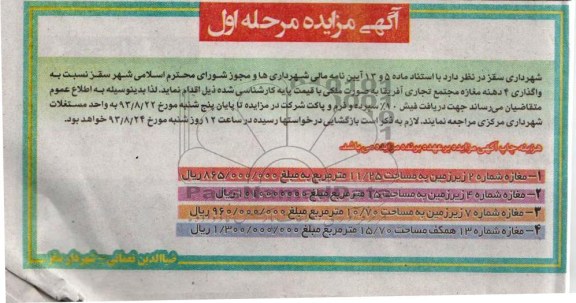 آگهی مزایده مرحله اول
شهرداری سقز در نظر دارد با استناد ماده ۵ و ۱۳ آیین نامه مالی شهرداری ها و مجوز شورای محترم اسلامی شهر سقز نسبت به
واگذاری ۴ دهنه مغازه مجتمع تجاری آفریقا بصورت ملکی با قیمت پایه کارشناسی شده ذیل اقدام نماید. لذا بدینوسیله به اطلاع عموم
متقاضیان می‌رساند جهت دریافت فیش ۱۰٪ سپرده و فرم و پاکت شرکت در مزایده تا پایان پنج شنبه مورخ ۹۳/۸/۲۲ به واحد مستغلات
شهرداری مرکزی مراجعه نمایند. لازم به ذکر است بازگشایی درخواستها رسیده در ساعت ۱۲ روز شنبه مورخ ۹۳/۸/۲۴ خواهد بود.
هزینه چاپ آگهی مزایده بر عهده برنده مزایده می باشد.
۱- مغازه شماره ۲ زیرزمین به مساحت ۱۱/۲۵ مترمربع به مبلغ ۸۶۵/۰۰۰/۰۰۰ ریال
۲- مغازه شماره ۴ زیرزمین به مساحت مترمربع مبلغ ریال
۳- مغازه شماره ۷ زیرزمین به مساحت ۱۰/۷۰ مترمربع مبلغ ۹۶۰/۰۰۰/۰۰۰ ریال
۴- مغازه شماره ۱۳ همکف مساحت ۱۵/۷۰ مترمربع مبلغ ۱/۳۰۰/۰۰۰/۰۰۰ ریال
ضیاالدین نعمانی - شهردار سقز